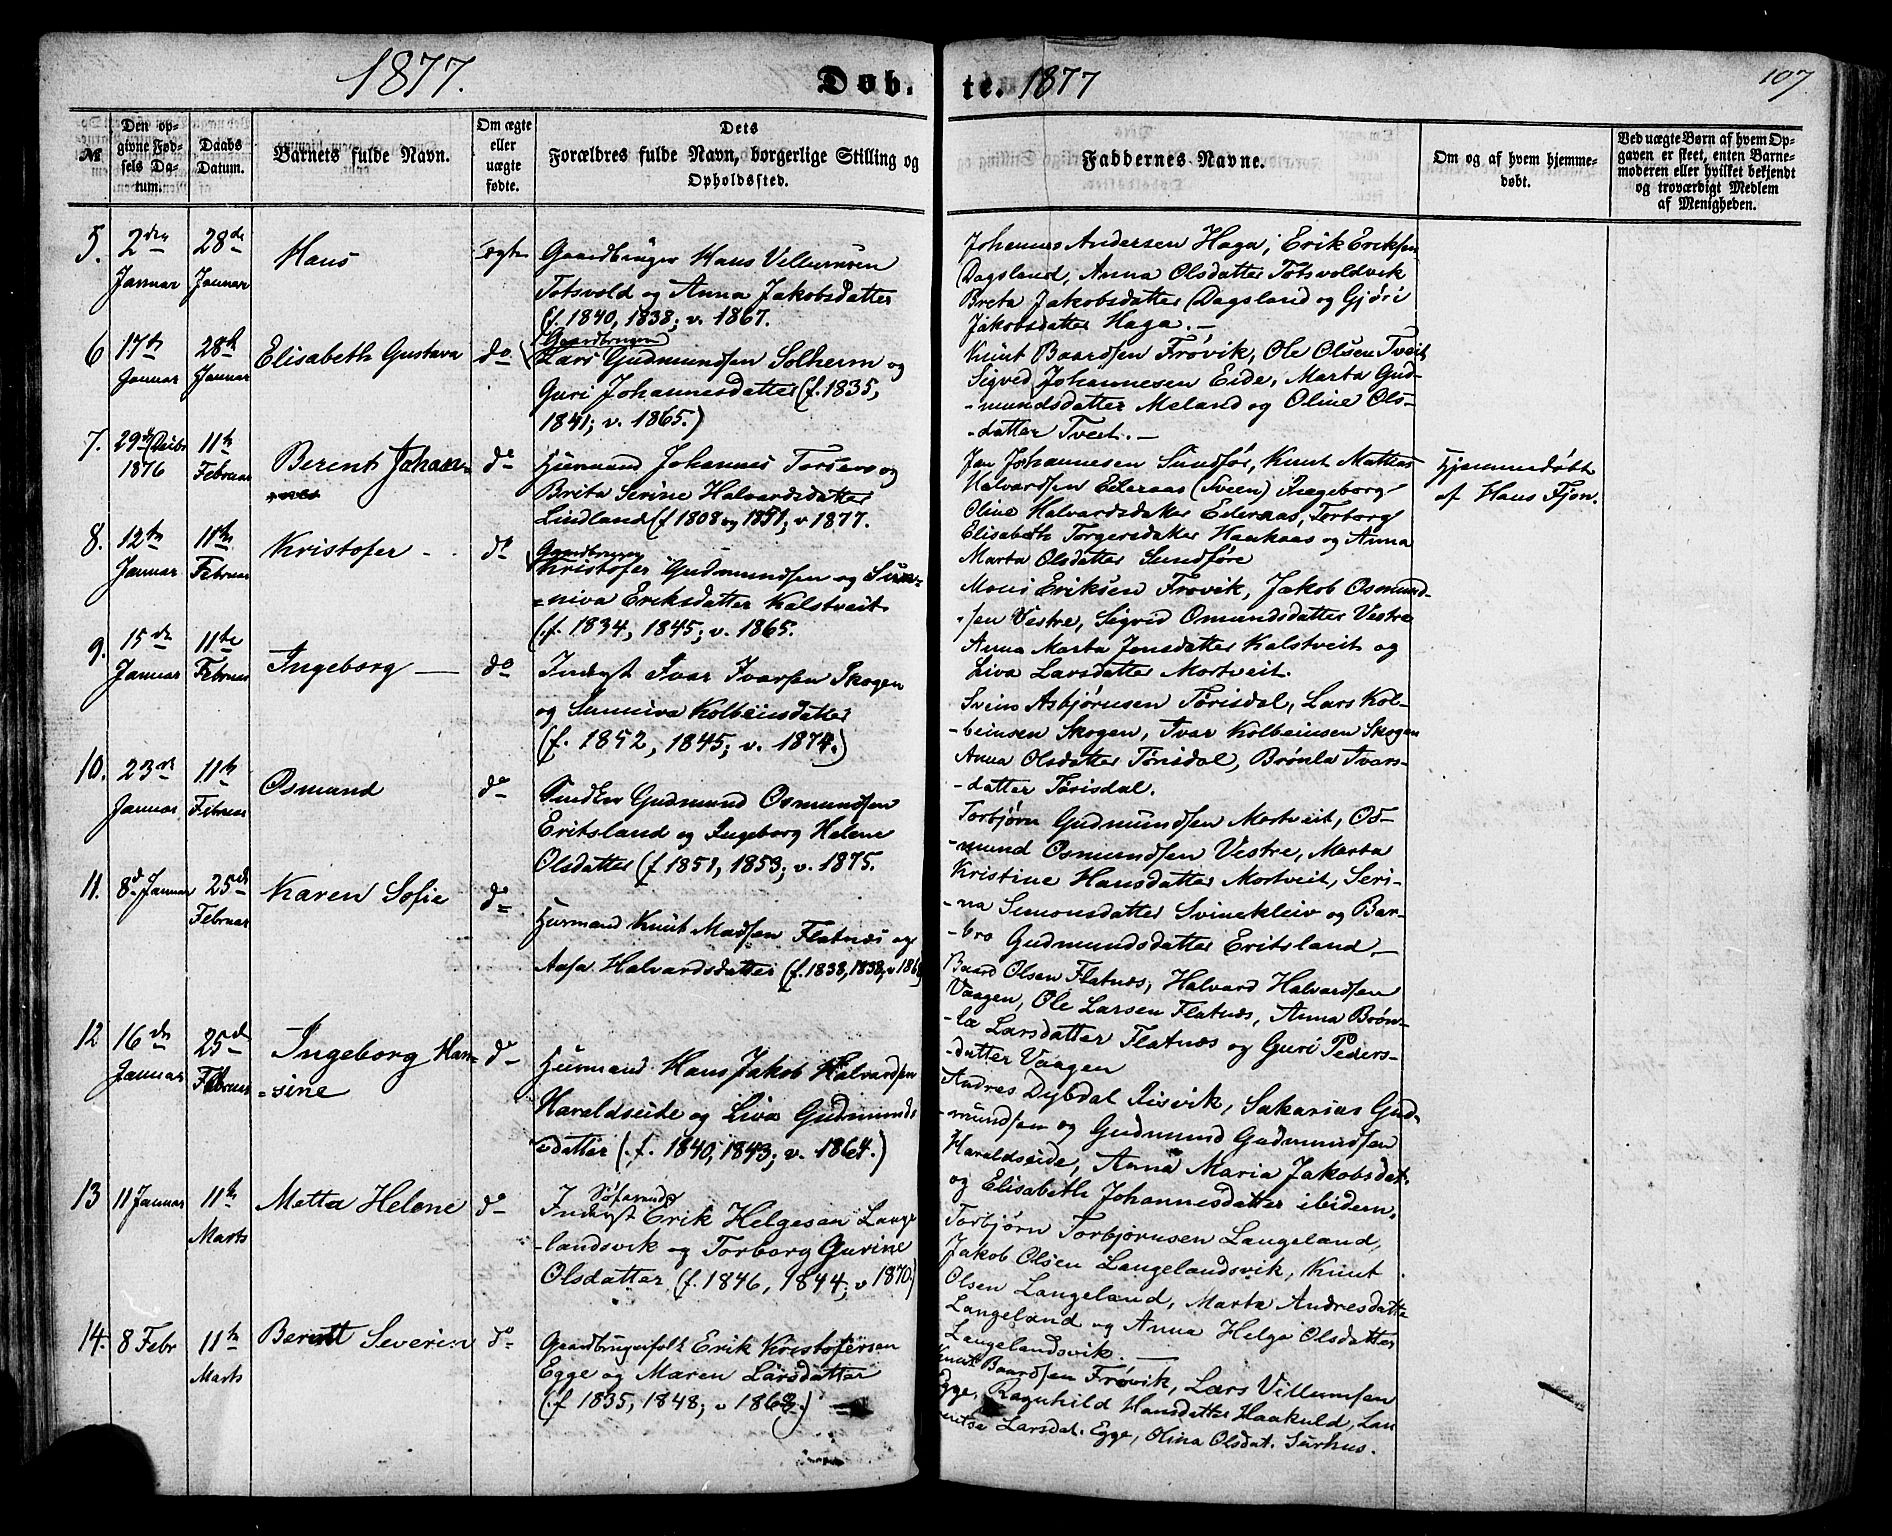 1877.
Døb.
te. 1877
107
№
Den op-
givne Fød-
sels Da-
tum.
Daabs
Datum.
Barnets fulde Navn.
Om ægte
eller
uægte
fødte.
Dets
Forældres fulde Navn, borgerlige Stilling og
Opholdssted.
Faddernes Navne.
Om og af hvem hjemme-
døbt.
Ved uægte Børn af hvem Op-
gaven er skeet, enten Barne-
moderen eller hvilket bekjendt
og troværdigt Medlem
af Menigheden.
5.
2den
Januar
28de
Januar
Hans
ægte
Gaardbruger Hans Villumsen
Totsvold og Anna Jakobsdatter
(f. 1840, 1838; v. 1867.
Johannes Andersen Haga, Erik Eriksen
Dagsland, Anna Olsdatter Totsvoldvik
Breta Jakobsdatter Dagsland og Gjøri
Jakobsdatter Haga. —
6
17de
Januar
28de
Januar
Elisabeth Gustava
do
Gaardbruger
Lars Gudmundsen Solheim og
Guri Johannesdatter (f. 1835,
1841; v. 1865.)
Knut Baardsen Frøvik, Ole Olsen Tveit
Sigved Johannesen Eide, Marta Gud-
-mundsdatter Meland og Oline Ols-
-datter Tveit. —
7.
29de Decbr
1876
11te
Februar
Berent Johan-
nes
do
Huusmand Johannes Torsen og
Brita Serine Halvardsdatter
Lindland (f 1808 og 1851, v 1877.
Jan Johannesen Sundfør, Knut Mathias
Halvardsen Ederaas (Sveen) Ingeborg
Oline Halvardsdatter Ederaas, Torborg
Elisabeth Torgersdatter Haakaas og Anna
Marta Olsdatter Sundføre
Hjemmedøbt
af Hans Fjon.
8.
12te
Januar
11te
Februar
Kristofer
do
Gaardbruger
Kristofer Gudmundsen og Sun-
=niva Eriksdatter Kalstveit
(f. 1834, 1845; v. 1865.
Mons Eriksen Frøvik, Jakob Osmund-
-sen Vestre, Sigvid Omundsdatter Vestre
Anna Marta Jonsdatter Kalstveit og
Liva Larsdatter Mortveit.
9.
15de
Januar
11te
Februar
Ingeborg —
do
Inderst Ivar Ivarsen Skogen
og Sunniva Kolbeinsdatter
(f. 1852, 1845; v. 1874.)
Svein Asbjørnsen Tørisdal, Lars Kol-
-beinsen Skogen, Ivar Kolbeinsen Skogen
Anna Olsdatter Tørisdal, Brønla Ivars-
-datter Tørisdal.
10.
23de
Januar
11te
Februar
Osmund
do
Gudmund Osmundsen
Eritsland og Ingeborg Helene
Olsdatter (f 1851, 1853; v. 1875.
Torbjørn Gudmundsen Mortveit, Os-
-mund Osmundsen Vestre, Marta
Kristine Hansdatter Mortveit, Seri-
-na Simonsdatter Svinekleiv og Bar-
-bro Gudmundsdatter Eritsland. —
11.
8d Januar
25de
Februar
Karen Sofie
do
Huusmand Knut Madsen Flatnæs og
Aasa Halvardsdatter (f. 1838, 1838,
Baard Olsen Flatnæs, Halvard Halvardsen
Vaagen, Ole Larsen Flatnæs, Anna Brøn-
-la Larsdatter Flatnæs og Guri Peders-
-datter Vaagen
12
16de
Januar
25de
Februar
Ingeborg Han-
=sine
do
Huusmand Hans Jakob Halvardsen
Haraldseide og Liva Gudmunds-
datter (f. 1840, 1843; v. 1864.)
Andres Dybdal Risvik, Sakarias Gud-
-mundsen og Gudmund Gudmundsen
Haraldseide, Anna Maria Jakobsdat.
og Elisabeth Johannesdatter ibidem.
13
11 Januar
11te
Marts
Metta Helene
do
Søfarende
Inderst Erik Helgesen Lange
-landsvik og Torborg Gurine
Olsdatter (f. 1846, 1844; v 1870.)
Torbjørn Torbjørnsen Langeland,
Jakob Olsen Langelandsvik, Knut
Olsen Langeland, Marta Andresdatte
Langeland og Anna Helga Olsdatter
Langelandsvik. —
14.
8 Febr
11te
Marts
Berntt Severin
do
Gaardbrugerfolk Erik Kristofersen
Egge og Maren Larsdatter
(f 1835, 1848; v 1868.)
Knut Baardsen Frøvik, Lars Villumsen
Egge, Ragnhild Hansdatter Haakuld, Lau
rentse Larsdat. Egge, Olina Olsdat. Surhus.